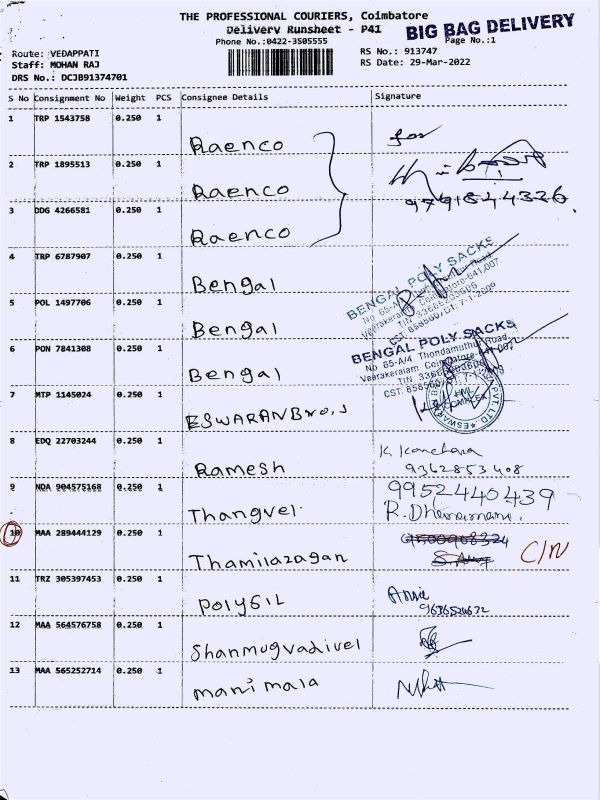 THE PROFESSIONAL COURIERS, Coimbatore
Delivery Runsheet - P41
BIG BAG DELIVERY
Phone No.:0422-3505555
Page No.:1
Route: VEDAPPATI
RS No.: 913747
Staff: MOHAN RAJ
RS Date: 29-Mar-2022
DRS No.: DCJB91374701
S No Consignment No Weight PCS Consignee Details Signature
1 TRP 1543758 0.250 1 Raenco for
2 TRP 1895513 0.250 1 Raenco
9791844326
3 DDG 4266581 0.250 1 Raenco
4 TRP 6787907 0.250 1 Bengal
BENGAL POLY SACKS
5 POL 1497706 0.250 1 Bengal
BENGAL POLY SACKS
No 65-A/4 Thondamuthur Road,
Veerakeralam Coimbatore
6 PON 7841308 0.250 1 Bengal
7 MTP 1145024 0.250 1 ESWARANBros
8 EDQ 22703244 0.250 1 Ramesh
9362853408
9 NDA 904575168 0.250 1 Thangvel 9952440439
10 MAA 289444129 0.250 1 Thamilazagan
11 TRZ 305397453 0.250 1 Polysil
12 MAA 564576758 0.250 1 Shanmugvadivel
13 MAA 565252714 0.250 1 Manimala